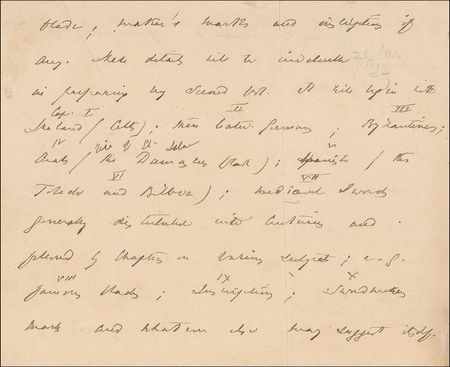 blade; maker's marks and inscription if
any. These details will be invaluable
in preparing my Second Vol. It will begin with
Cap. I II III
Ireland (Celts); then Later Germans; Byzantines;
IV V
Arabs (the Damascus blade); Spanish (the
VI VII
Toledo and Bilboa); mediæval Swords
generally distributed into Centuries and
followed by Chapters on various subjects; e.g.
VIII IX X
famous blades; Inscriptions; Swordmakers
marks and whatever else may suggest itself.